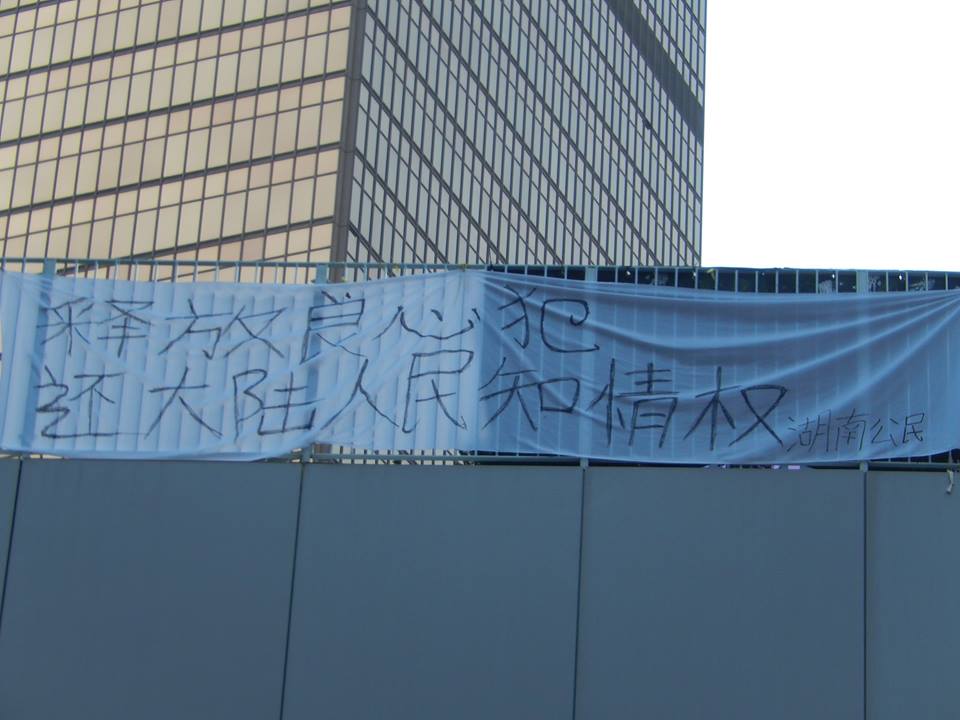 释放良心犯
还大陆人民知情权 湖南公民